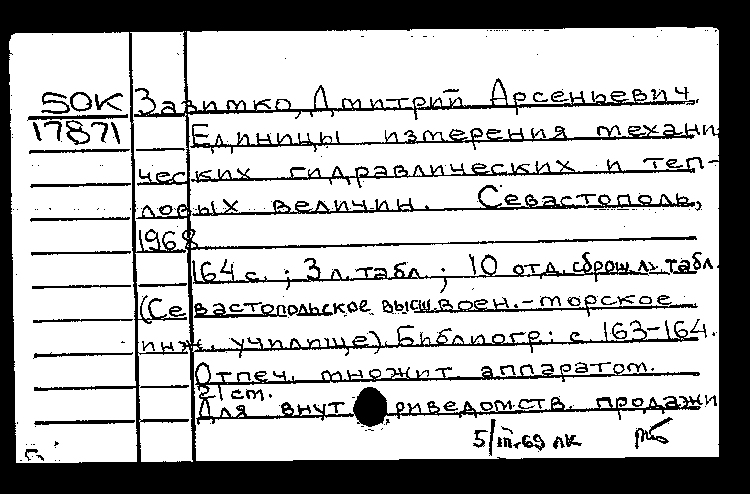 50К Зазимко, Дмитрий Арсеньевич.
17871 Единицы измерения механи-
ческих гидравлических и теп-
ловых величин. Севастополь,
1968
164 с. ; 3 л. табл ; 10 отд. сброш. л. табл.
(Севастопольское высш. воен.-морское
инж. училище). Библиогр: с. 163-164.
Отпеч. множит аппаратом.
21 cm.
Для внут риведомств. продажи
5/III-69 лк